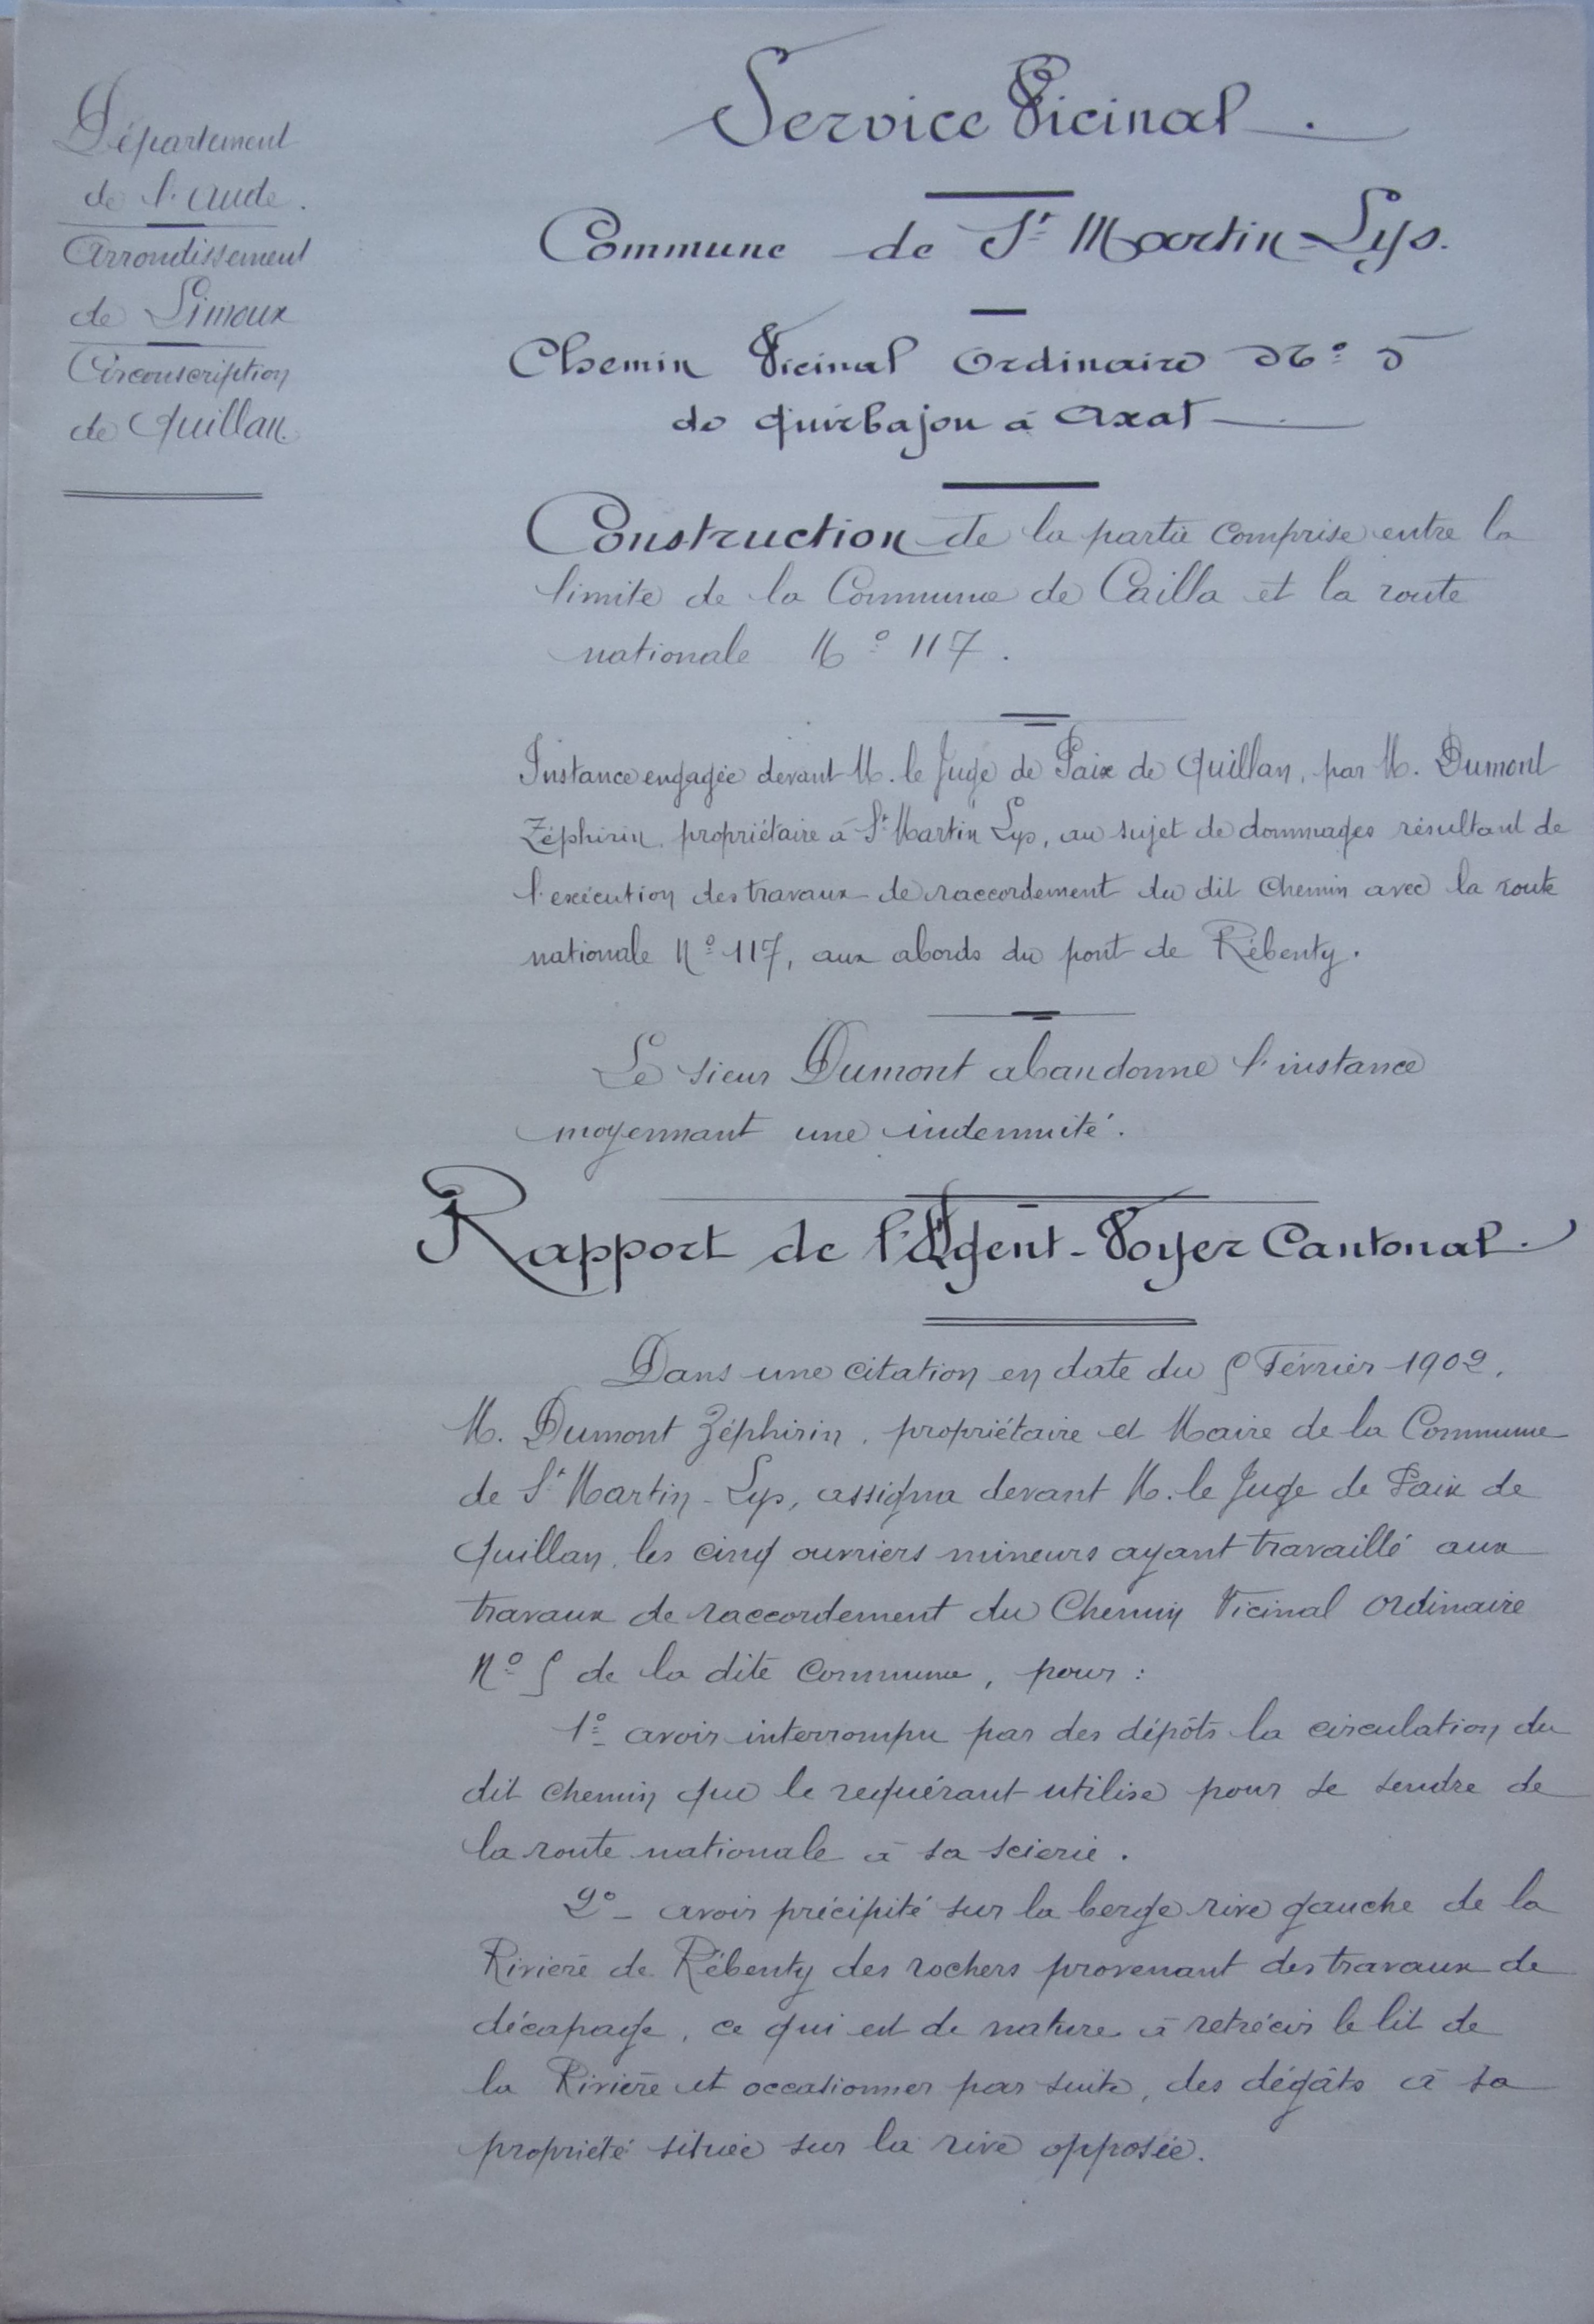 Département
de l'Aude.
Arrondissement
de Limoux
Circonscription
de Quillan.
Service Vicinal.
Commune de St Martin-Lys.
Chemin Vicinal Ordinaire No 5
de Quirbajou à Axat
Construction de la partie comprise entre la
limite de la Commune de Cailla et la route
nationale No 117.
Instance engagée devant M. le Juge de Paix de Quillan, par M. Dumont
Zéphirin, propriétaire à St Martin Lys, au sujet de dommages résultant de
l'exécution des travaux de raccordement du dit Chemin avec la route
nationale No 117, aux abords du pont de Rébenty.
Le sieur Dumont abandonne l'instance
moyennant une indemnité.
Rapport de l'Agent-Voyer Cantonal.
Dans une citation en date du 5 Février 1902,
M. Dumont Zéphirin, propriétaire et Maire de la Commune
de St Martin-Lys, assigna devant M. le Juge de Paix de
Quillan, les cinq ouvriers mineurs ayant travaillé aux
travaux de raccordement du Chemin Vicinal Ordinaire
No 5 de la dite Commune, pour :
1o avoir interrompu par des dépôts la circulation du
dit chemin que le requérant utilise pour se rendre de
la route nationale à sa scierie.
2o - avoir précipité sur la berge rive gauche de la
Rivière de Rébenty des rochers provenant des travaux de
décapage, ce qui est de nature à retrécir le lit de
la Rivière et occasionner par suite, des dégâts à sa
propriété située sur la rive opposée.